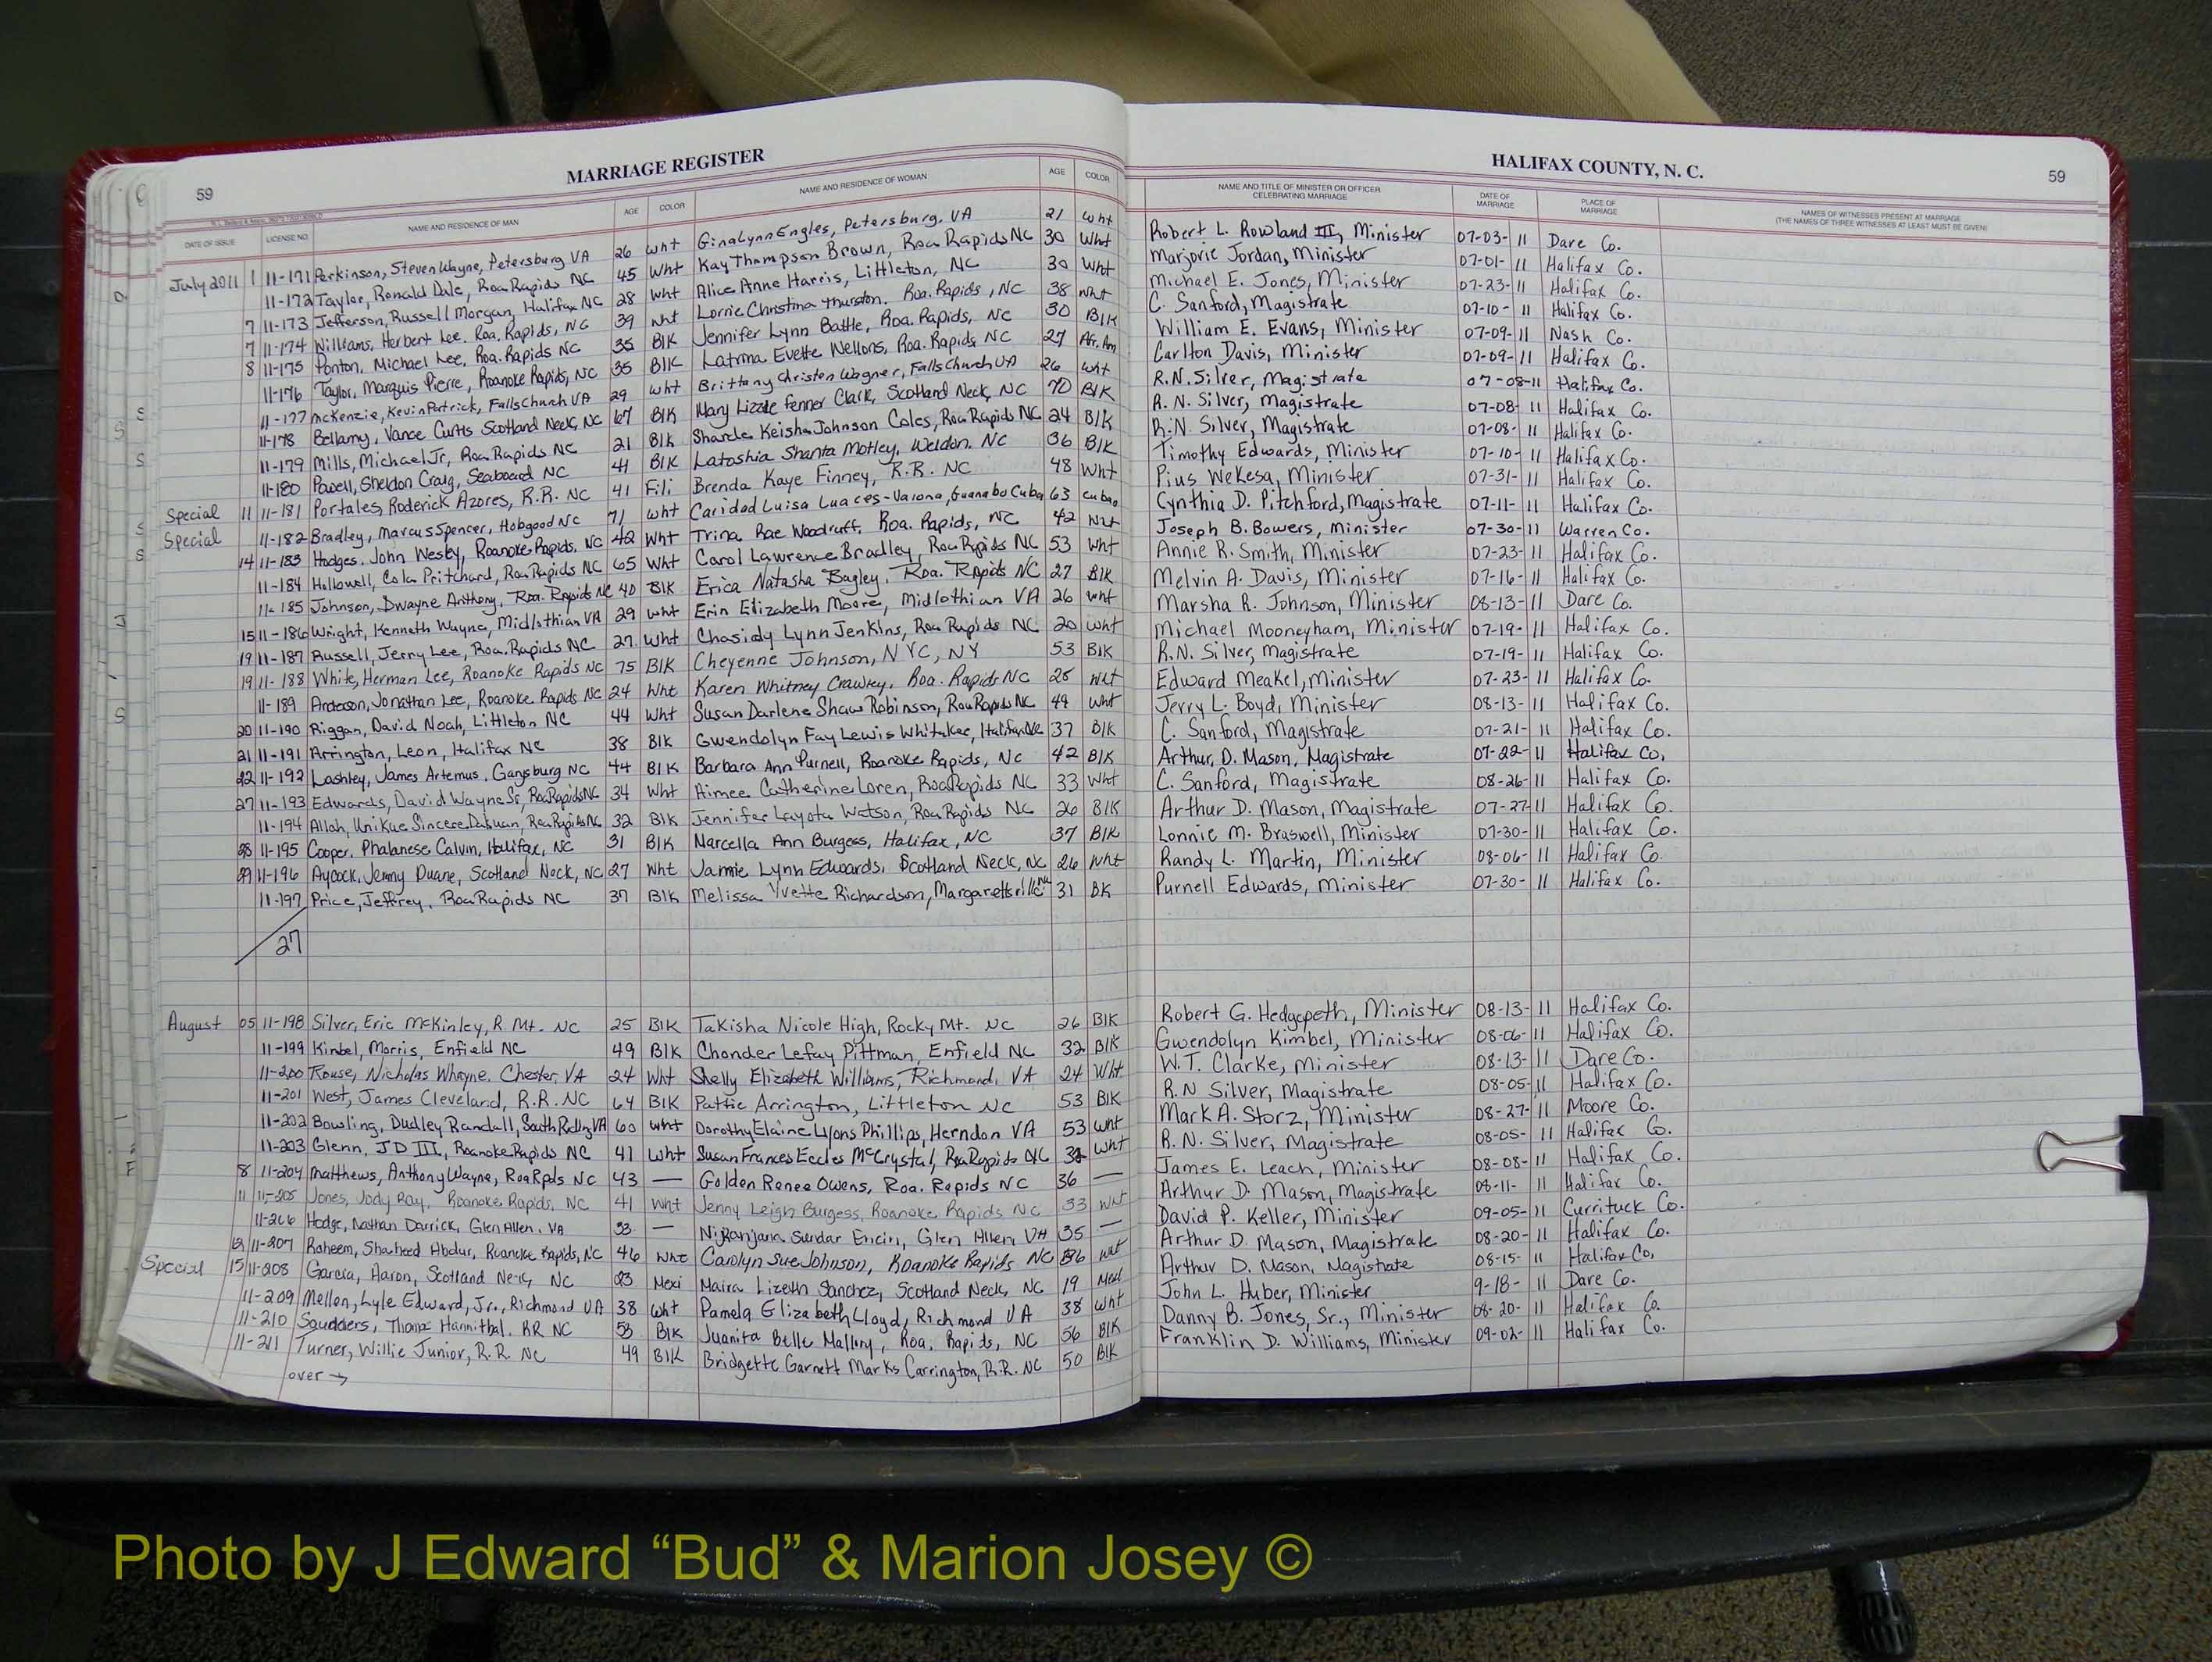 59 MARRIAGE REGISTER
HALIFAX COUNTY, N. C. 59
DATE OF ISSUE LICENSE NO. NAME AND RESIDENCE OF MAN AGE COLOR NAME AND RESIDENCE OF WOMAN AGE COLOR NAME AND TITLE OF MINISTER OR OFFICER CELEBRATING MARRIAGE DATE OF MARRIAGE PLACE OF MARRIAGE NAMES OF WITNESSES PRESENT AT MARRIAGE (THE NAMES OF THREE WITNESSES AT LEAST MUST BE GIVEN)
July 2011 1 11-171 Perkinson, Steven Wayne, Petersburg VA 26 Wht Gina Lynn Engles, Petersburg, VA 21 Wht Robert L. Rowland III, Minister 07-03-11 Dare Co.
11-172 Taylor, Ronald Dale, Roa Rapids NC 45 Wht Kay Thompson Brown, Roa Rapids NC 30 Wht Marjorie Jordan, Minister 07-01-11 Halifax Co.
7 11-173 Jefferson, Russell Morgan, Halifax NC 28 Wht Alice Anne Harris, Littleton, NC 30 Wht Michael E. Jones, Minister 07-23-11 Halifax Co.
7 11-174 Williams, Herbert Lee, Roa. Rapids, NC 39 Wht Lorrie Christina Thurston, Roa. Rapids, NC 38 Wht C. Sanford, Magistrate 07-10-11 Halifax Co.
8 11-175 Ponton, Michael Lee, Roa. Rapids NC 35 Blk Jennifer Lynn Battle, Roa. Rapids, NC 30 Blk William E. Evans, Minister 07-09-11 Nash Co.
11-176 Taylor, Marquis Pierre, Roanoke Rapids, NC 35 Blk Latrina Evette Wellons, Roa. Rapids NC 27 Afr. Am Carlton Davis, Minister 07-09-11 Halifax Co.
11-177 McKenzie, Kevin Patrick, Falls Church VA 29 Wht Brittany Christen Wagner, Falls Church VA 26 Wht R.N. Silver, Magistrate 07-08-11 Halifax Co.
11-178 Bellamy, Vance Curtis Scotland Neck, NC 67 Blk Mary Lizzie Fenner Clark, Scotland Neck, NC 70 Blk R. N. Silver, Magistrate 07-08-11 Halifax Co.
11-179 Mills, Michael Jr, Roa Rapids NC 21 Blk Sharda Keisha Johnson Coles, Roa Rapids NC 24 Blk R.N. Silver, Magistrate 07-08-11 Halifax Co.
11-180 Powell, Sheldon Craig, Seaboard NC 41 Blk Latoshia Shanta Motley, Weldon, NC 36 Blk Timothy Edwards, Minister 07-10-11 Halifax Co.
Special 11 11-181 Portales, Roderick Azores, R.R. NC 41 Fili Brenda Kaye Finney, R.R. NC 48 Wht Pius Wekesa, Minister 07-31-11 Halifax Co.
Special 11-182 Bradley, Marcus Spencer, Hobgood NC 71 Wht Caridad Luisa Luaces-Varona, Guanabo Cuba 63 Cuban Cynthia D. Pitchford, Magistrate 07-11-11 Halifax Co.
14 11-183 Hodges, John Wesley, Roanoke Rapids, NC 42 Wht Trina Rae Woodruff, Roa. Rapids, NC 42 Wht Joseph B. Bowers, Minister 07-30-11 Warren Co.
11-184 Hollowell, Cola Pritchard, Roa Rapids NC 65 Wht Carol Lawrence Bradley, Roa Rapids NC 53 Wht Annie R. Smith, Minister 07-23-11 Halifax Co.
11-185 Johnson, Dwayne Anthony, Roa. Rapids NC 40 Blk Erica Natasha Bagley, Roa. Rapids NC 27 Blk Melvin A. Davis, Minister 07-16-11 Halifax Co.
15 11-186 Wright, Kenneth Wayne, Midlothian VA 29 Wht Erin Elizabeth Moore, Midlothian VA 26 Wht Marsha R. Johnson, Minister 08-13-11 Dare Co.
19 11-187 Russell, Jerry Lee, Roa. Rapids NC 27 Wht Chasidy Lynn Jenkins, Roa Rapids NC 20 Wht Michael Mooneyham, Minister 07-19-11 Halifax Co.
19 11-188 White, Herman Lee, Roanoke Rapids NC 75 Blk Cheyenne Johnson, NYC, NY 53 Blk R.N. Silver, Magistrate 07-19-11 Halifax Co.
11-189 Anderson, Jonathan Lee, Roanoke Rapids NC 24 Wht Karen Whitney Crawley, Roa. Rapids NC 25 Wht Edward Meakel, Minister 07-23-11 Halifax Co.
20 11-190 Riggan, David Noah, Littleton NC 44 Wht Susan Darlene Shaw Robinson, Roa Rapids NC 49 Wht Jerry L. Boyd, Minister 08-13-11 Halifax Co.
21 11-191 Arrington, Leon, Halifax NC 38 Blk Gwendolyn Fay Lewis Whitaker, Halifax NC 37 Blk C. Sanford, Magistrate 07-21-11 Halifax Co.
22 11-192 Lashley, James Artemus, Garysburg NC 44 Blk Barbara Ann Purnell, Roanoke Rapids, NC 42 Blk Arthur D. Mason, Magistrate 07-22-11 Halifax Co.
27 11-193 Edwards, David Wayne Sr, Roa Rapids NC 34 Wht Aimee Catherine Loren, Roa Rapids NC 33 Wht C. Sanford, Magistrate 08-26-11 Halifax Co.
11-194 Allah, Unikue Sincere Dasuan, Roa Rapids NC 32 Blk Jennifer Layota Watson, Roa Rapids NC 26 Blk Arthur D. Mason, Magistrate 07-27-11 Halifax Co.
28 11-195 Cooper, Phalanese Calvin, Halifax, NC 31 Blk Marcella Ann Burgess, Halifax, NC 37 Blk Lonnie M. Braswell, Minister 07-30-11 Halifax Co.
29 11-196 Aycock, Jemmy Duane, Scotland Neck, NC 27 Wht Jamie Lynn Edwards, Scotland Neck, NC 26 Wht Randy L. Martin, Minister 08-06-11 Halifax Co.
11-197 Price, Jeffrey, Roa Rapids NC 37 Blk Melissa Yvette Richardson, Margarettsville NC 31 BK Purnell Edwards, Minister 07-30-11 Halifax Co.
27
August 05 11-198 Silver, Eric McKinley, R. Mt. NC 25 Blk Takisha Nicole High, Rocky Mt. NC 26 Blk Robert G. Hedgepeth, Minister 08-13-11 Halifax Co.
11-199 Kimbel, Morris, Enfield NC 49 Blk Chonder Lefay Pittman, Enfield NC 32 Blk Gwendolyn Kimbel, Minister 08-06-11 Halifax Co.
11-200 Rouse, Nicholas Whayne, Chester, VA 24 Wht Shelly Elizabeth Williams, Richmond, VA 24 Wht W.T. Clarke, Minister 08-13-11 Dare Co.
11-201 West, James Cleveland, R.R. NC 64 Blk Pattie Arrington, Littleton NC 53 Blk R.N Silver, Magistrate 08-05-11 Halifax Co.
11-202 Bowling, Dudley Randall, South Riding VA 60 Wht Dorothy Elaine Lyons Phillips, Herndon VA 53 Wht Mark A. Storz, Minister 08-27-11 Moore Co.
11-203 Glenn, JD III, Roanoke Rapids NC 41 Wht Susan Frances Eccles McCrystal, Roa Rapids NC Wht R. N. Silver, Magistrate 08-05-11 Halifax Co.
8 11-204 Matthews, Anthony Wayne, Roa Rpds NC 43 — Golden Renee Owens, Roa. Rapids NC 36 — James E. Leach, Minister 08-08-11 Halifax Co.
11 11-205 Jones, Jody Ray, Roanoke Rapids, NC 41 Wht Jenny Leigh Burgess, Roanoke Rapids NC 33 Wht Arthur D. Mason, Magistrate 08-11-11 Halifax Co.
11-206 Hodge, Nathan Darrick, Glen Allen, VA 33 — Niranjana Sundar Encin, Glen Allen VA 35 — David P. Keller, Minister 09-05-11 Currituck Co.
12 11-207 Raheem, Shaheed Abdur, Roanoke Rapids, NC 46 Wht Carolyn Sue Johnson, Roanoke Rapids NC 36 Wht Arthur D. Mason, Magistrate 08-20-11 Halifax Co.
Special 15 11-208 Garcia, Aaron, Scotland Neck, NC 23 Mexi Maira Lizeth Sanchez, Scotland Neck, NC 19 Mexi Arthur D. Mason, Magistrate 08-15-11 Halifax Co.
11-209 Mellen, Lyle Edward, Jr., Richmond VA 38 Wht Pamela Elizabeth Lloyd, Richmond VA 38 Wht John L. Huber, Minister 9-18-11 Dare Co.
11-210 Saudders, Thoma Hannithal, RR NC 53 Blk Juanita Belle Mallory, Roa. Rapids, NC 56 Blk Danny B. Jones, Sr., Minister 08-20-11 Halifax Co.
11-211 Turner, Willie Junior, R.R. NC 49 Blk Bridgette Garnett Marks Carrington, R.R. NC 50 Blk Franklin D. Williams, Minister 09-02-11 Halifax Co.
over →
Photo by J Edward “Bud” & Marion Josey ©